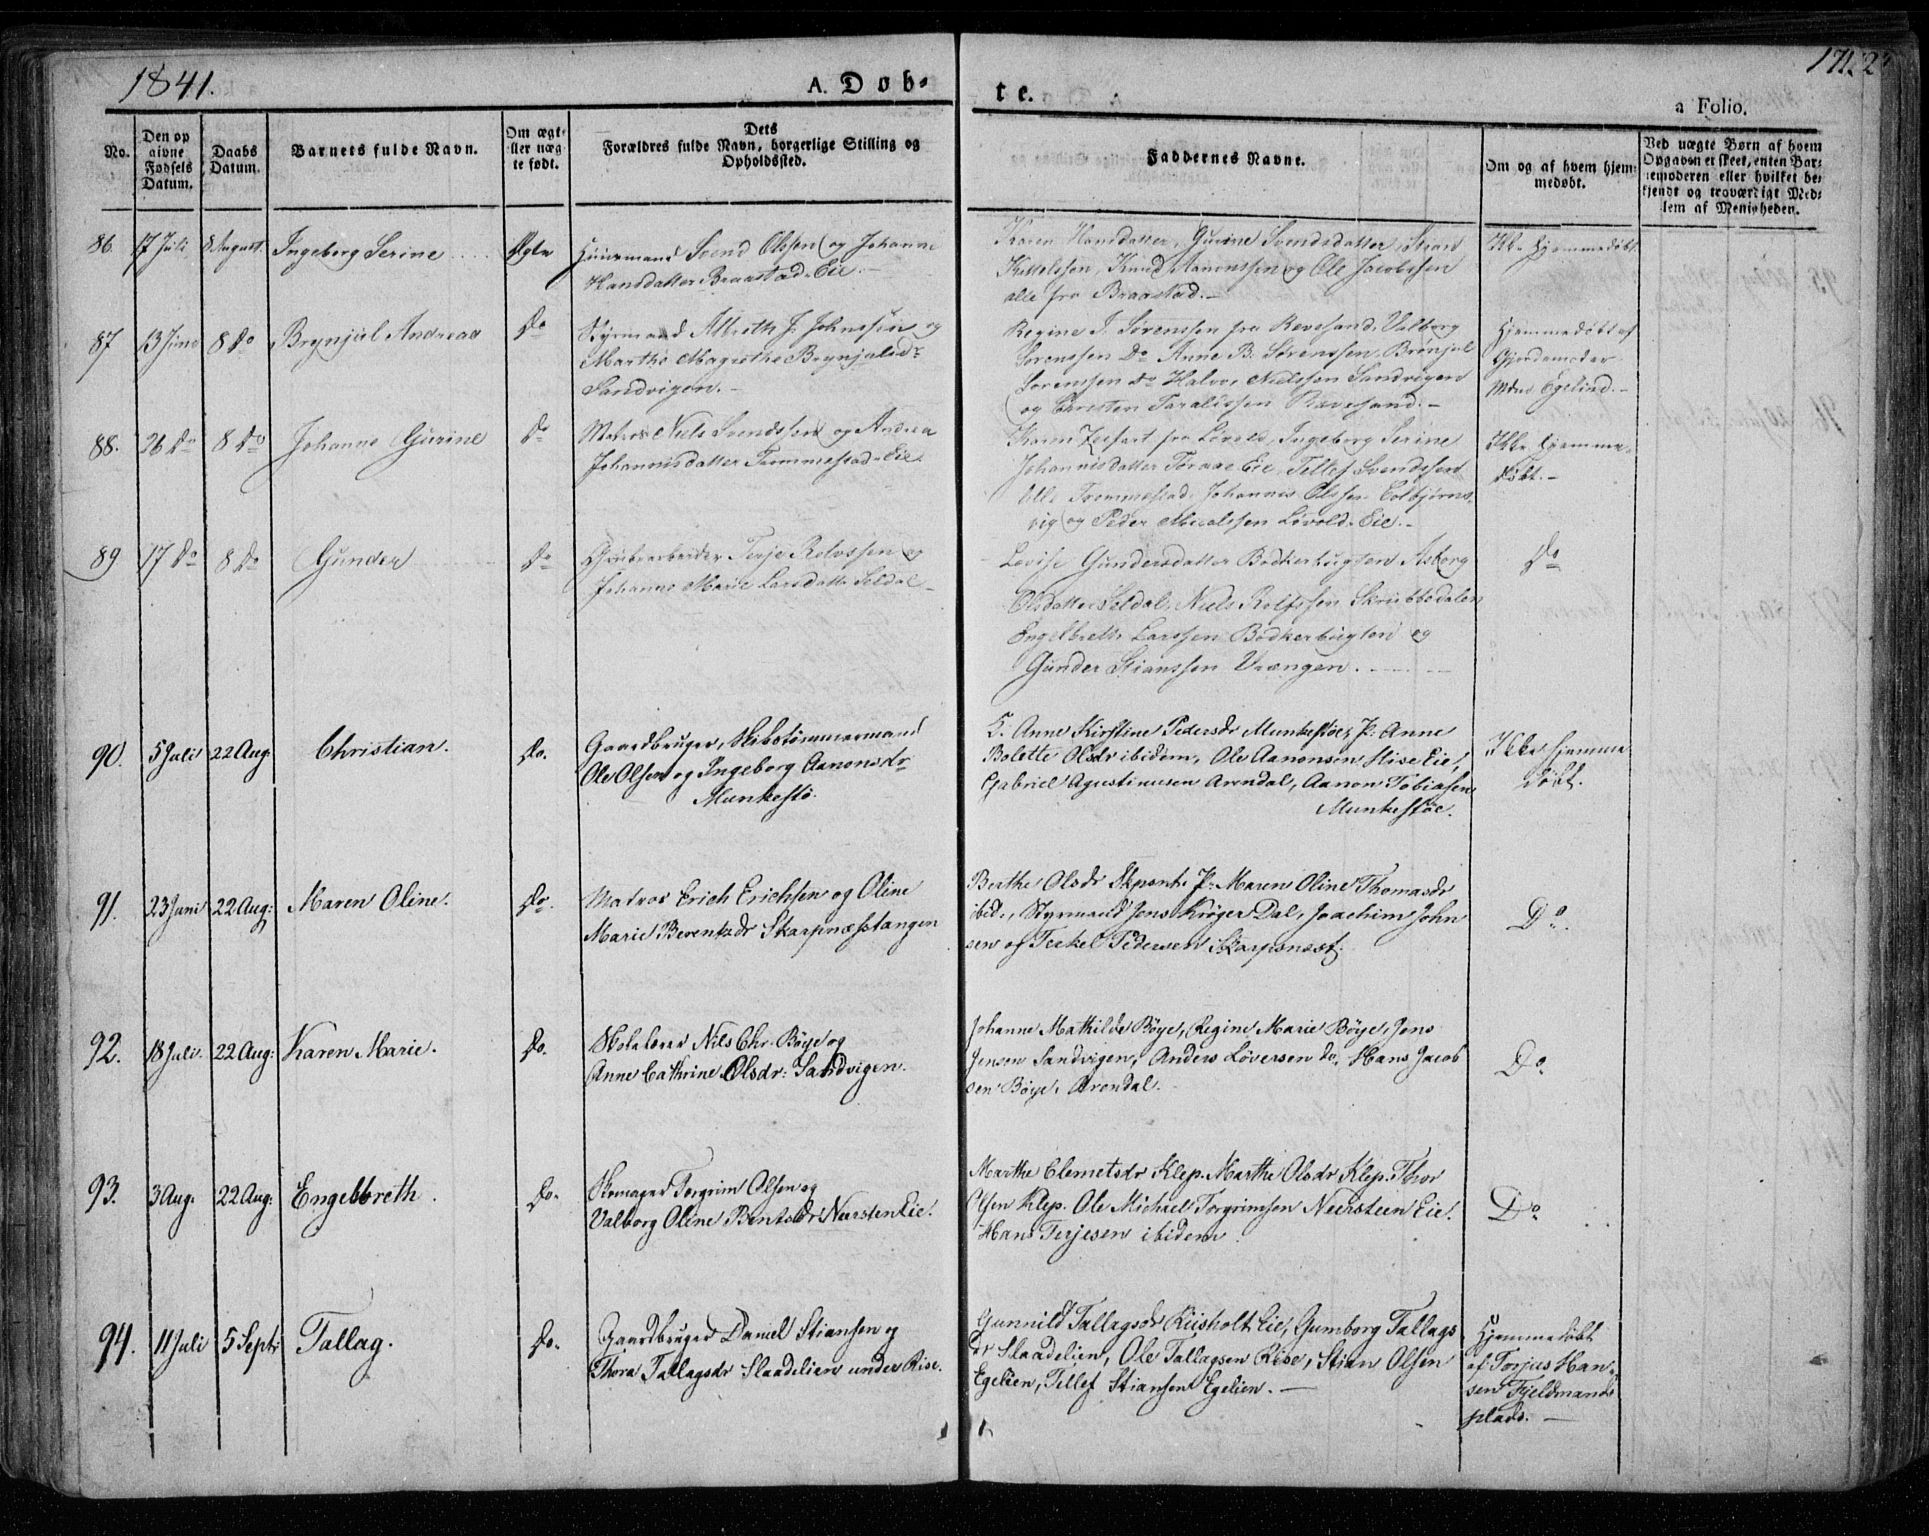 1841.
A. Döb-
te.
171.
a Folio.
No.
Den op
givne
Fødsels
Datum.
Daabs
Datum.
Barnets fulde Navn.
Om ægt-
eller uæg-
te født.
Dets
Forældres fulde Navn, borgerlige Stilling og
Opholdssted.
Faddernes Navne.
Om og af hvem hjem-
medøbt.
Ved uægte Børn af hvem
Opgaven er skeet, enten Bar-
nemoderen eller hvilket be-
kjendt og troværdigt Med-
lem af Menigheden.
86 17 Juli 8 August. Ingeborg Serine Ægte
Huusmand Svend Olssen og Johanne
Hansdatter Braastad-Eie.-
Karen Hansdatter, Gurine Svendsdatter,
Kittelssen, Knud Aanonssen og Ole Jacobssen
alle fra Braastad.-
Ikke hjemmedøbt.
87 13 Juni 8 Do Brynjul Andreas Do
Styrmand J. Johnssen og
Marthe Magrethe Brynjulsdr
Sandvigen.-
Regine J. Sørenssen fra Revesand, Valborg
Sørenssen Do Anne B. Sørenssen, Brønjul
Sørenssen do Halvor Nielssen Sandvigen
og Christen Taraldssen Revesand.-
Hjemmedøbt af
Gjordemoder
Egelund.-
88. 26 Do 8 Do Johanne Gurine Do
Matros Niels Svendssen og Andrea
Johannisdatter Trommestad-Eie.
Karen fra Løvold, Ingeborg Serine
Johannisdatter Eie, Tellef Svendssen
Trommestad, Johannis Olssen Colbjørns-
vig og Peder Løvold-Eie.-
Ikke hjemme-
døbt.-
89 17 Do 8 Do Gunder Do
Grubearbeider Terje Rolvssen og
Johanne Marie Larsdatter Seldal-
Lovise Gundersdatter Bødkerbugten Asborg
Olsdatter Seldal, Niels Rolfssen Skrubbedalen
Engelbrett Larssen Bødkerbugten og
Gunder Stianssen Vrængen.
Do
90. 5 Juli 22 Aug. Christian. Do.
Gaardbruger, Skibstømmermand
Ole Olsen og Ingeborg Aanonsdr
Munkestø.
Anne Kirstine Pedersdr Munkestøe, P: Anne
Bolette Olsdr ibidem, Ole Aanonsen Hise Eie,
Gabriel Agustinusen Arendal, Aanon Tobiasen
Munkestøe.
Ikke hjemme
døbt.
91. 23 Juni 22 Aug: Maren Oline. Do.
Matros Erich Erichsen og Oline
Marie Berentsdr Skarpnæsstangen
Berthe Olsdr Skpsnt. P: Maren Oline Thomasdr
ibid., Styrmand Jens Krøger Dal, Joachim John
sen og Terkel Pedersen Skarpsnæst.
Do.
92. 18 Juli. 22 Aug: Karen Marie. Do.
Nils Chr. Bøye og
Anne Cathrine Olsdr: Sandvigen.
Johanne Mathilde Bøye, Regine Marie Bøye, Jens
Jensen Sandvigen, Anders Løversen do. Hans Jacob
sen Bøye, Arendal.
Do
93. 3 Aug. 22 Aug: Engelbreth. Do.
Skomager Torgrim Olsen og
Valborg Oline Bentsdr Neersten Eie.
Marthe Clemetsdr Klep. Marthe Olsdr Klep. Thor
Olsen Klep. Ole Michael Torgrimsen Neersteen Eie.
Hans Terjesen ibidem.
Do
94. 11 Juli 5 Sept: Tallag. Do.
Gaardbruger Daniel Stiansen og
Thora Tallagsdr Slaadelien under Rise.
Gunnild Tallagsdr Kiisholt Eie, Gumborg Tallags
dr Slaadelien, Ole Tallagsen Rise, Stian Olsen
Egelien, Tellef Stiansen Egelien.-
Hjemmedøbt
af Torjus Han-
sen Fjeldmands
plads.-